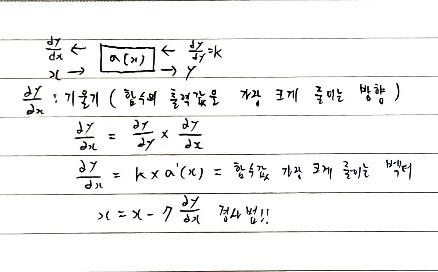 ∂y/∂x ← a(x) ← ∂y/∂y=k
x → → y
∂y/∂x : 기울기 ( 함수의 출력값을 가장 크게 줄이는 방향 )
∂y/∂x = ∂y/∂y × ∂y/∂x
∂y/∂x = k × a'(x) = 함숫값 가장 크게 줄이는 벡터
x = x - η ∂y/∂x 경사법!!